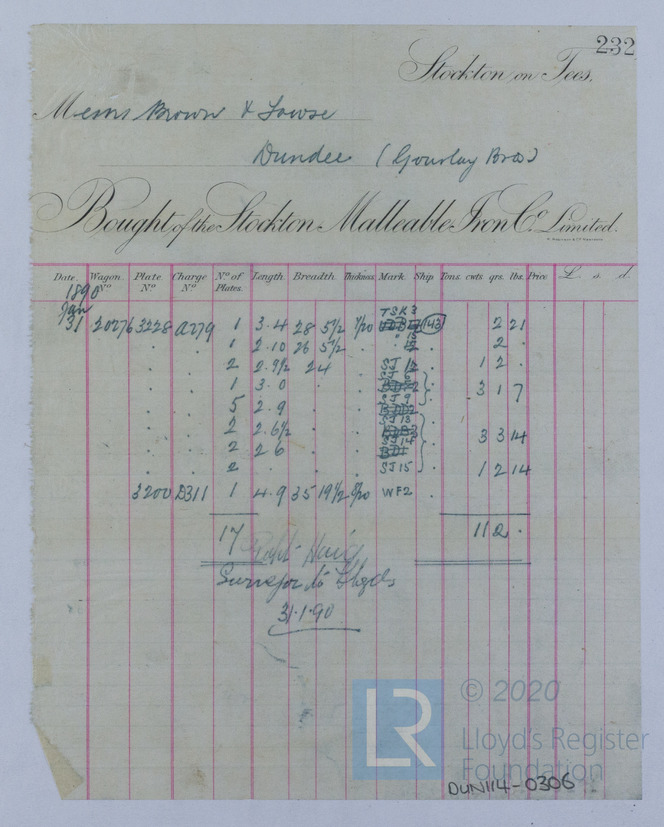 232
Stockton on Tees,
Messrs Brown &
Dundee (Gourlay Bros)
Bought of the Stockton Malleable Iron Co. Limited.
Date. Wagon No. Plate No. Charge No. No. of Plates. Length. Breadth. Thickness. Mark. Ship. Tons. cwts. qrs. lbs. Price £ s. d.
1890
Jan TSK3
31 20276 3228 A279 1 3.4 28 5½ 7/20 143 2 21
. . . 1 2.10 26 5½ . . 2 .
. . . 2 2.9½ 24 . SJ . 1 2 .
. . . 1 3.0 . . . 3 1 7
. . . 5 2.9 . . SJ 9 .
. . . 2 2.6½ . . SJ 13 .
. . . 2 2 6 . . SJ 14 . 3 3 14
. . . 2 . . . SJ 15 . 1 2 14
3200 D311 1 4.9 35 19½ 8/20 WF2 .
17 11 2 .
Robt Haig
Surveyor to Lloyds
31.1.90
LR
© 2020
Lloyd's Register
Foundation
DUN114-0306